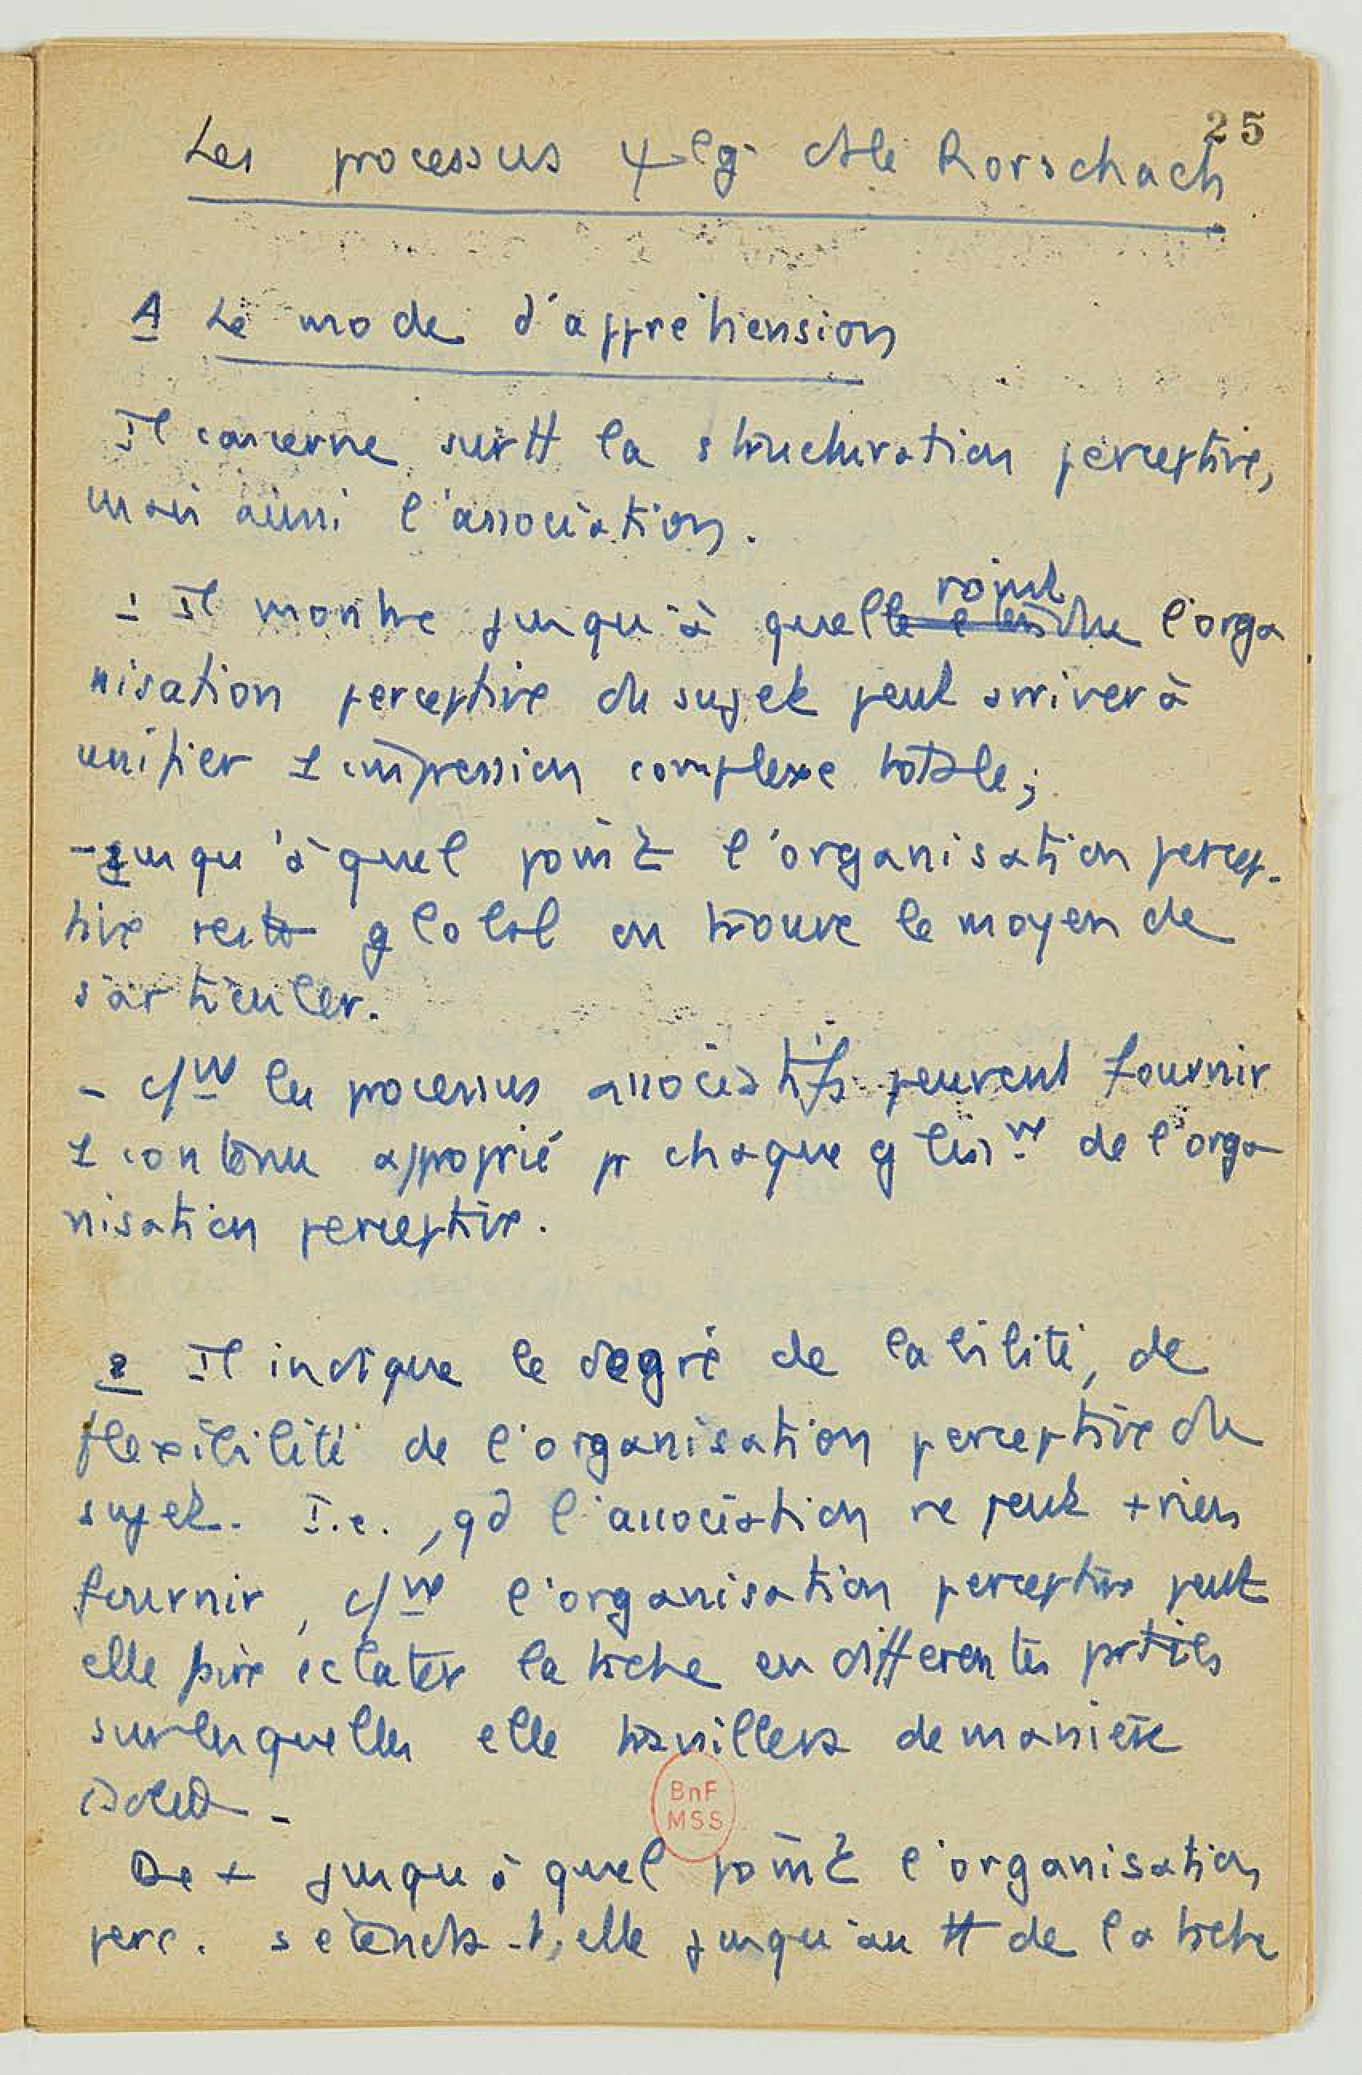 25
Les processus ψ lg. ds le Rorschach
A Le mode d'appréhension
Il concerne surtt la structuration perceptive,
mais aussi l'association.
1 Il montre jusqu'à quelle point l'orga
nisation perceptive du sujet peut arriver à
unifier 1 impression complexe totale;
- jusqu'à quel point l'organisation percep-
tive reste global ou trouve le moyen de
s'articuler.
- c/nt les processus associatifs peuvent fournir
1 contenu approprié pr chaque de l'orga
nisation perceptive.
2 Il indique le degré de labilité, de
flexibilité de l'organisation perceptive du
sujet. I.e., qd l'association ne peut + rien
fournir, c/nt l'organisation perceptive peut
elle faire éclater la tache en différentes parties
sur lesquelles elle travaillera de manière
isolée -
BnF
MSS
De + jusqu'à quel point l'organisation
perc. s'étendra-t-elle jusqu'au tt de la tache